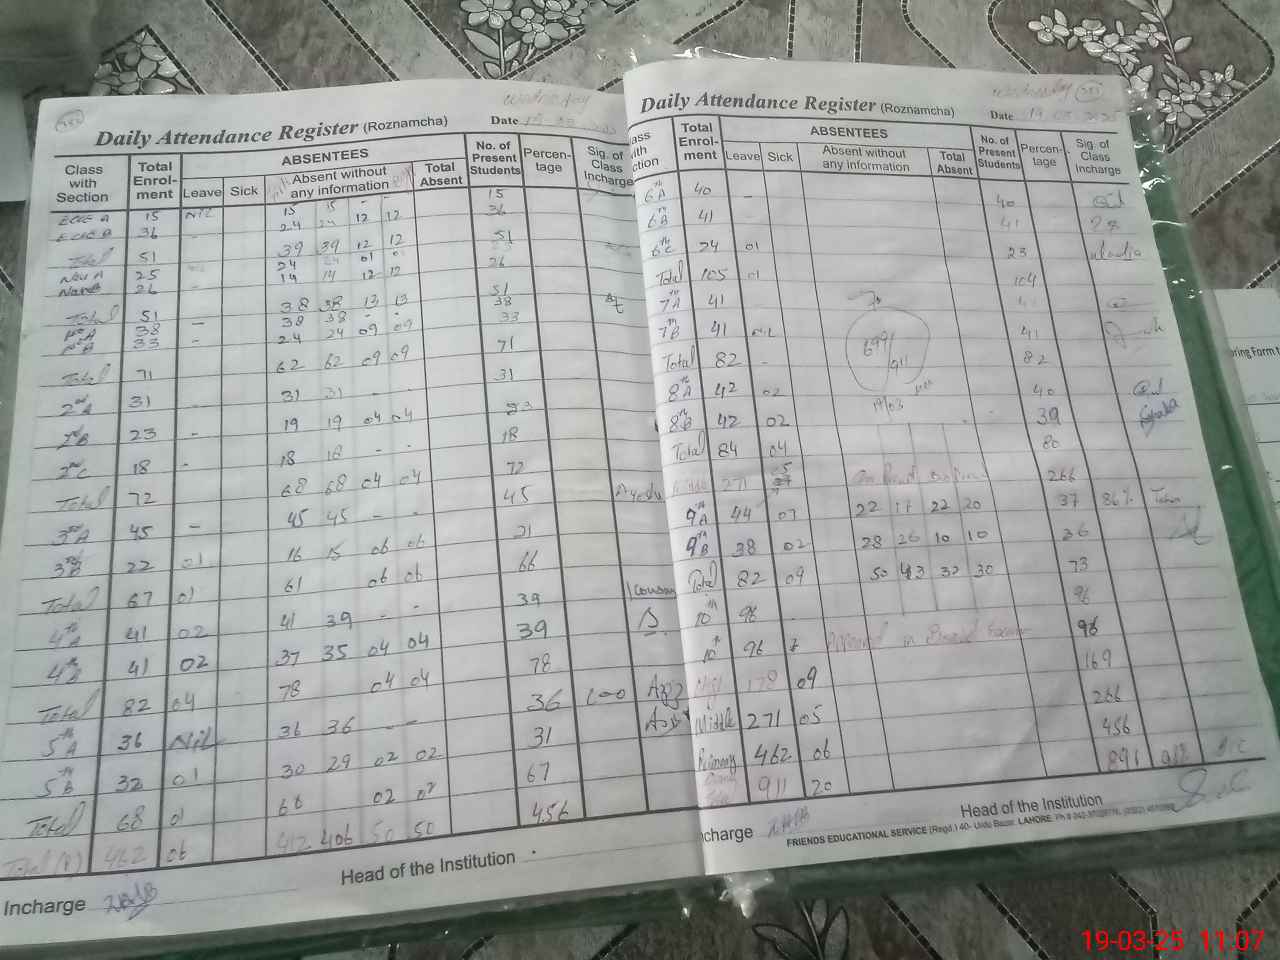 Wednesday
Daily Attendance Register (Roznamcha)
Date
Class with Section
Total Enrol-ment
ABSENTEES
Leave
Sick
Absent without any information
Total Absent
No. of Present Students
Percen-tage
Sig. of Class Incharge
ECE A 15 Nil 15 15 - - 15
ECE B 36 - 24 24 12 12 36
Total 51 39 39 12 12 51
Nur A 25 24 24 01 01
Nur B 26 - 14 14 12 12 26
Total 51 38 38 13 13 51
38 - 38 38 - - 38
33 24 24 09 09 33
Total 71 62 62 09 09 71
2nd A 31 - 31 31 - - 31
2nd B 23 - 19 19 04 04 23
2nd C 18 - 18 18 - - 18
Total 72 68 68 04 04 72
3rd A 45 - 45 45 - - 45
3rd B 22 01 16 15 06 06 21
Total 67 01 61 06 06 66
4th A 41 02 41 39 - - 39
4th B 41 02 37 35 04 04 39
Total 82 04 78 04 04 78
5th A 36 Nil 36 36 - - 36 100
5th B 32 01 30 29 02 02 31
Total 68 01 68 02 02 67
Total (P) 462 06 412 406 50 50 456
Incharge
Head of the Institution
Wednesday
Daily Attendance Register (Roznamcha)
Date 19.03.2025
Class with Section
Total Enrol-ment
ABSENTEES
Leave
Sick
Absent without any information
Total Absent
No. of Present Students
Percen-tage
Sig. of Class Incharge
6th A 40 - 40
6th B 41 - 41
6th C 24 01 23
Total 105 01 104
7th A 41
7th B 41 Nil 41
Total 82 - 82
699/911
19/03
8th A 42 02 40
8th B 42 02 39
Total 84 04 80
271 05 266
9th A 44 07 22 17 22 20 37 86%
9th B 38 02 28 26 10 10 36
Total 82 09 50 43 32 30 73
10th 96 - 96
10th 96 in Board Exam 96
High 178 09 169
Middle 271 05 266
Primary 462 06 456
911 20 891
Incharge
Head of the Institution
FRIENDS EDUCATIONAL SERVICE (Regd.) 40- Urdu Bazar, LAHORE.
19-03-25 11:07